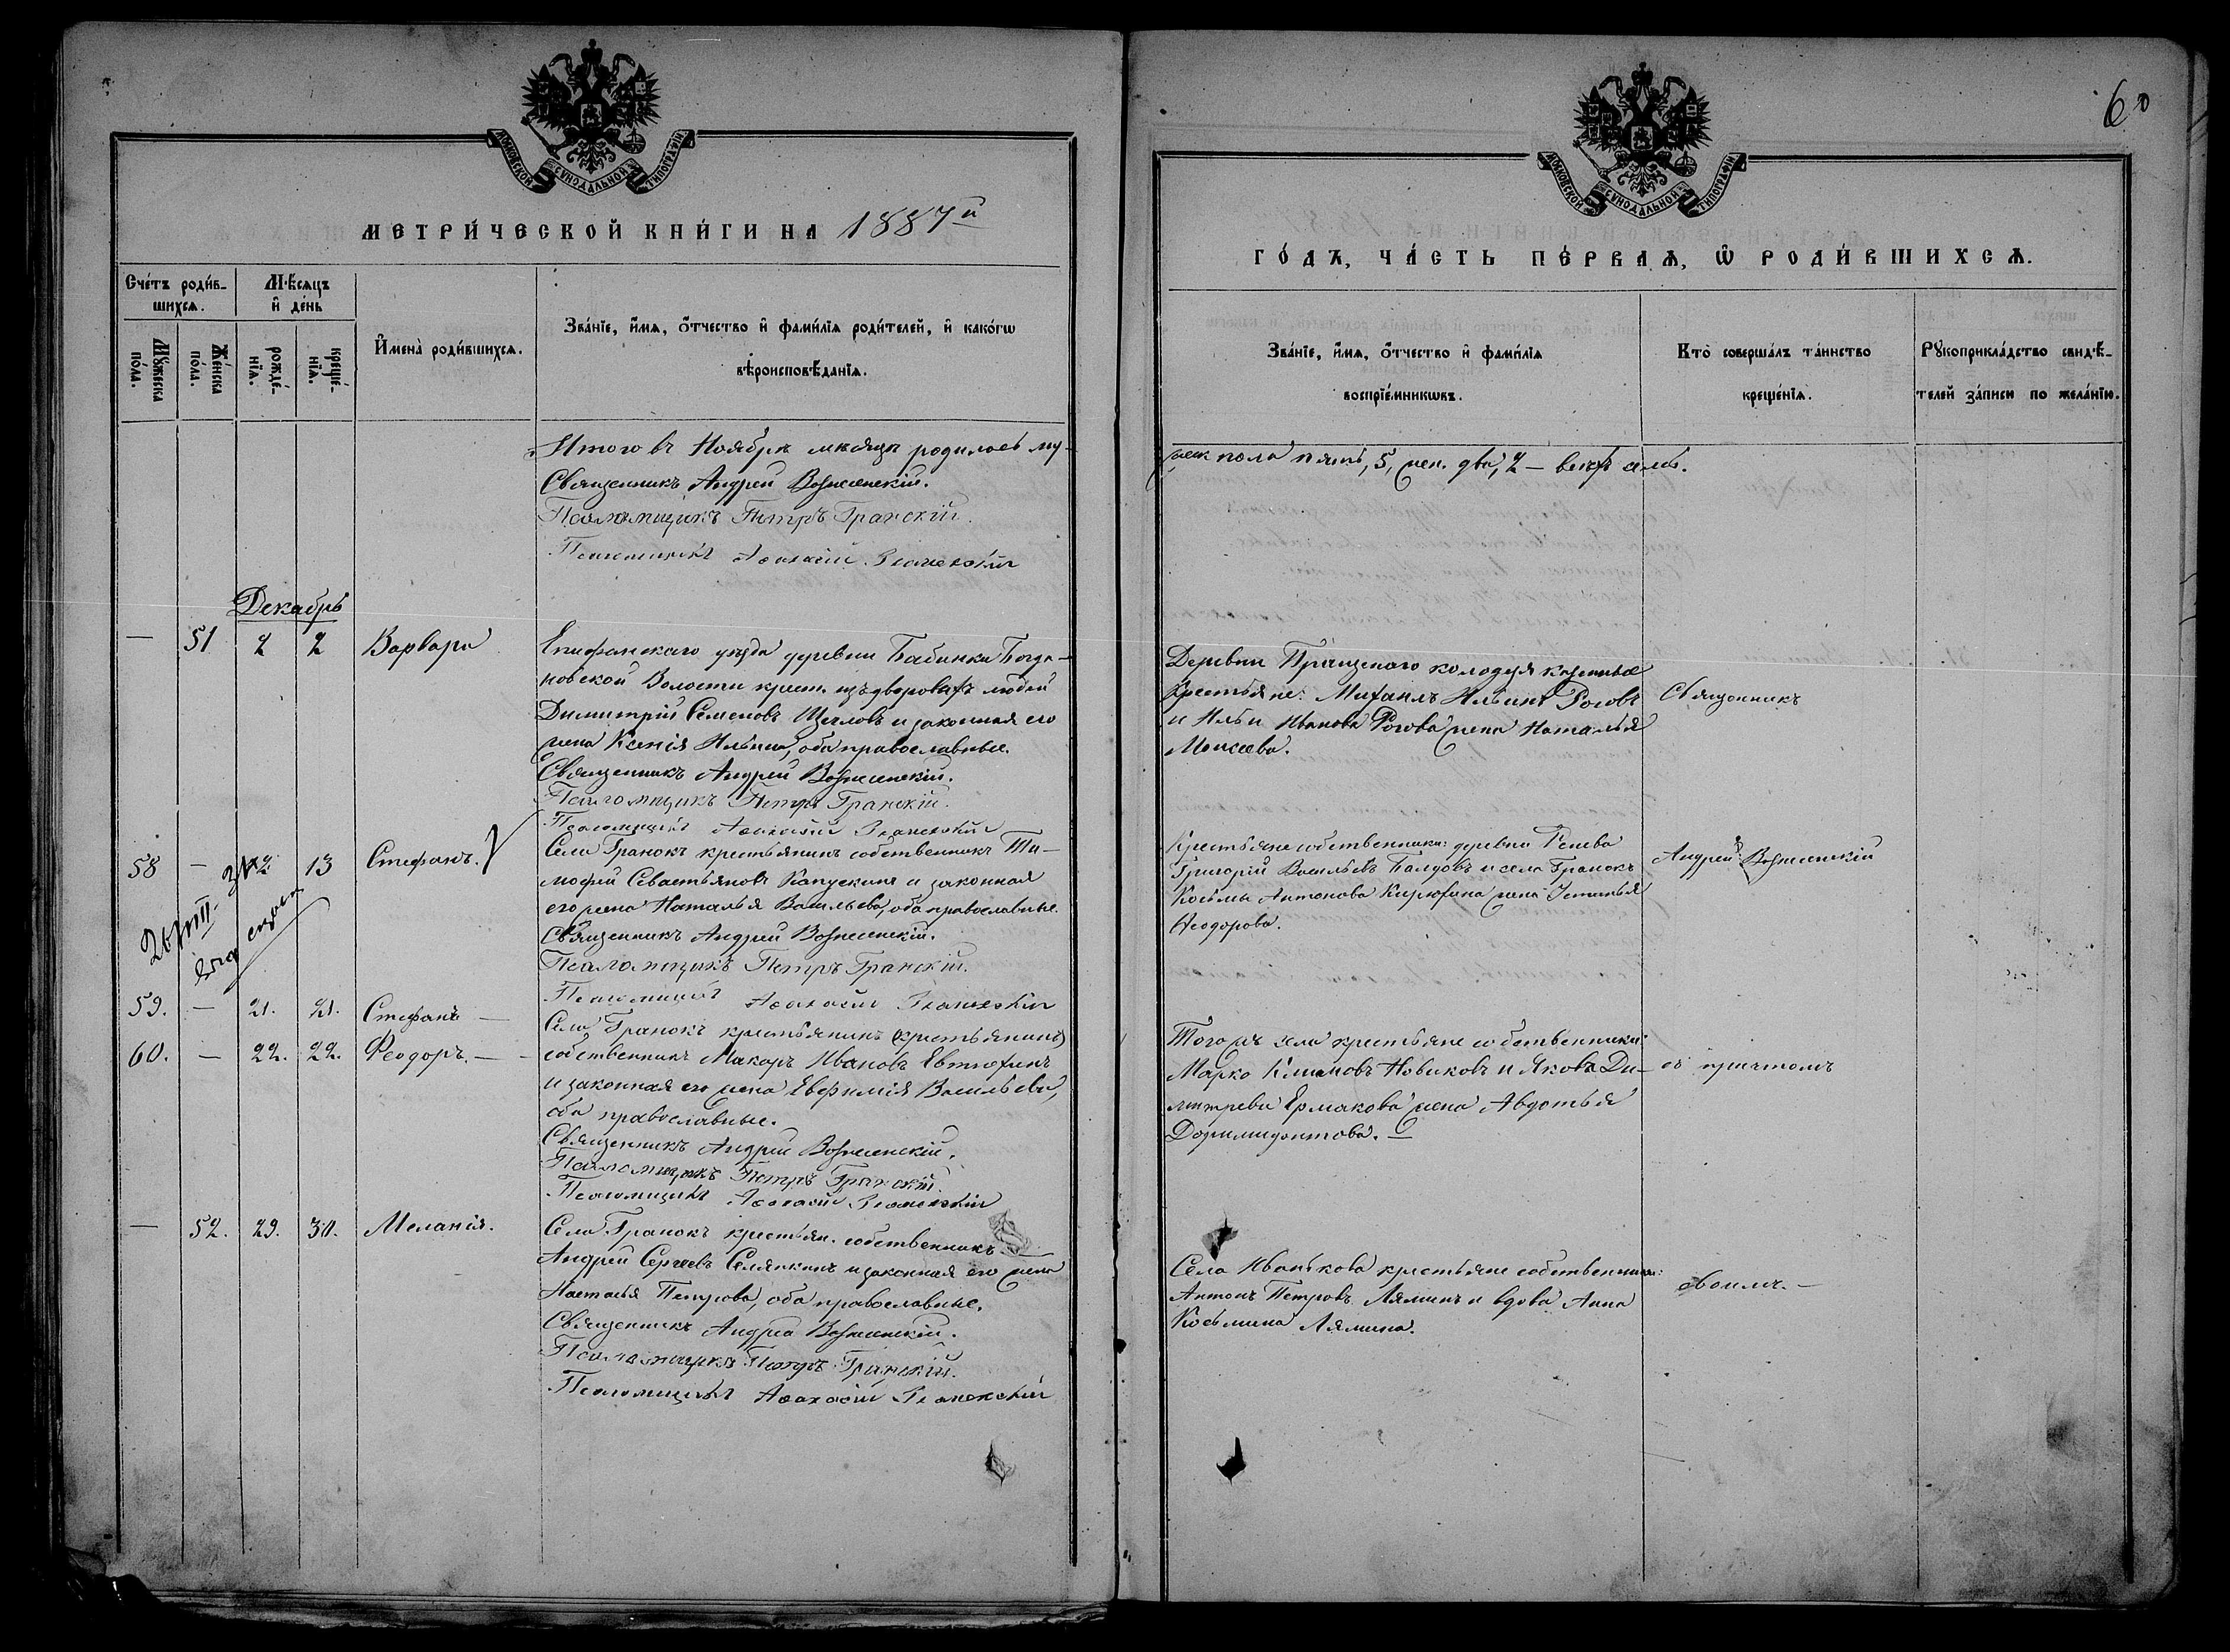 МОСКОВСКОЙ СУНОДАЛЬНОЙ ТИПОГРАФІИ
МЕТРИ́ЧЕСКОЙ КНИ́ГИ НА 1887й
Сче́тъ роди́в-
шихсѧ.
Мѣ́сѧцъ
и҆ де́нь
Мꙋ́жеска
по́ла.
Же́нска
по́ла.
рожде́-
нїѧ.
креще́-
нїѧ.
И҆мена̀ роди́вшихсѧ.
Зва́нїе, и҆́мѧ, ѻ҆́тчество и҆ фами́лїѧ роди́телей, и҆ како́гѡ
вѣроисповѣ́данїѧ.
Итого въ Ноябрѣ мѣсяцѣ родилось му-
Священникъ Андрей Вознесенскій.
Псаломщикъ Петръ Гранскій.
Псаломщикъ Афанасій Знаменскій
Декабрь
— 51 2 2 Варвара
Епифанскаго уѣзда деревни Бабинки Богда-
новской Волости крест. изъ дворовыхъ людей
Димитрій Семеновъ Щегловъ и законная его
жена Ксенія Ильина, оба православные.
Священникъ Андрей Вознесенскій.
Псаломщикъ Петръ Гранскій.
Псаломщикъ Афанасій Знаменскій
58 — 12 13 Стефанъ.
Села Гранокъ крестьянинъ собственникъ Ти-
мофей Севастьяновъ Капускинъ и законная
его жена Наталья Васильева, оба православные.
Священникъ Андрей Вознесенскій.
Псаломщикъ Петръ Гранскій.
Псаломщикъ Афанасій Знаменскій
59. — 21. 21. Стефанъ —
60. — 22. 22. Феодоръ. —
Села Гранокъ крестьянинъ (крестьянинъ)
собственникъ Макаръ Ивановъ Евтюфинъ
и законная его жена Евфимія Васильева,
оба православные.
Священникъ Андрей Вознесенскій.
Псаломщикъ Петръ Гранскій.
Псаломщикъ Афанасій Знаменскій
— 52. 29. 30. Меланія.
Села Гранокъ крестьян. собственникъ
Андрей Сергѣевъ Селянкинъ и законная его жена
Настасья Петрова, оба православные.
Священникъ Андрей Вознесенскій.
Псаломщикъ Петръ Гранскій.
Псаломщикъ Афанасій Знаменскій
60
МОСКОВСКОЙ СУНОДАЛЬНОЙ ТИПОГРАФІИ
ГО́ДЪ, ЧА́СТЬ ПЕ́РВАѦ, Ѽ РОДИ́ВШИХСѦ.
Зва́нїе, и҆́мѧ, ѻ҆́тчество и҆ фами́лїѧ
воспрїе́мникѡвъ.
Кто̀ соверша́лъ та́инство
креще́нїѧ.
Рꙋкоприкла́дство свидѣ́-
телей за́писи по жела́нїю.
жеск пола пять, 5, жен. два, 2 — всѣхъ семь.
Деревни Прощенаго колодезя казенные
крестьяне: Михаилъ Ильинъ Роговъ
и Ильи Иванова Рогова жена Наталья
Моисеева.
Священникъ
Крестьяне собственники: деревни Репева
Григорій Васильевъ Балдовъ и села Гранокъ
Косьмы Антонова Кирюхина жена Устинья
Ѳеодорова.
Андрей Вознесенскій
Того же села крестьяне собственники:
Марко Климовъ Новиковъ и Якова Ди-
митрева Ермакова жена Авдотья
Доримидонтова. —
съ причтомъ
Села Иванькова крестьяне собственники:
Антонъ Петровъ Ляминъ и вдова Анна
Косьмина Лямина.
своимъ. —